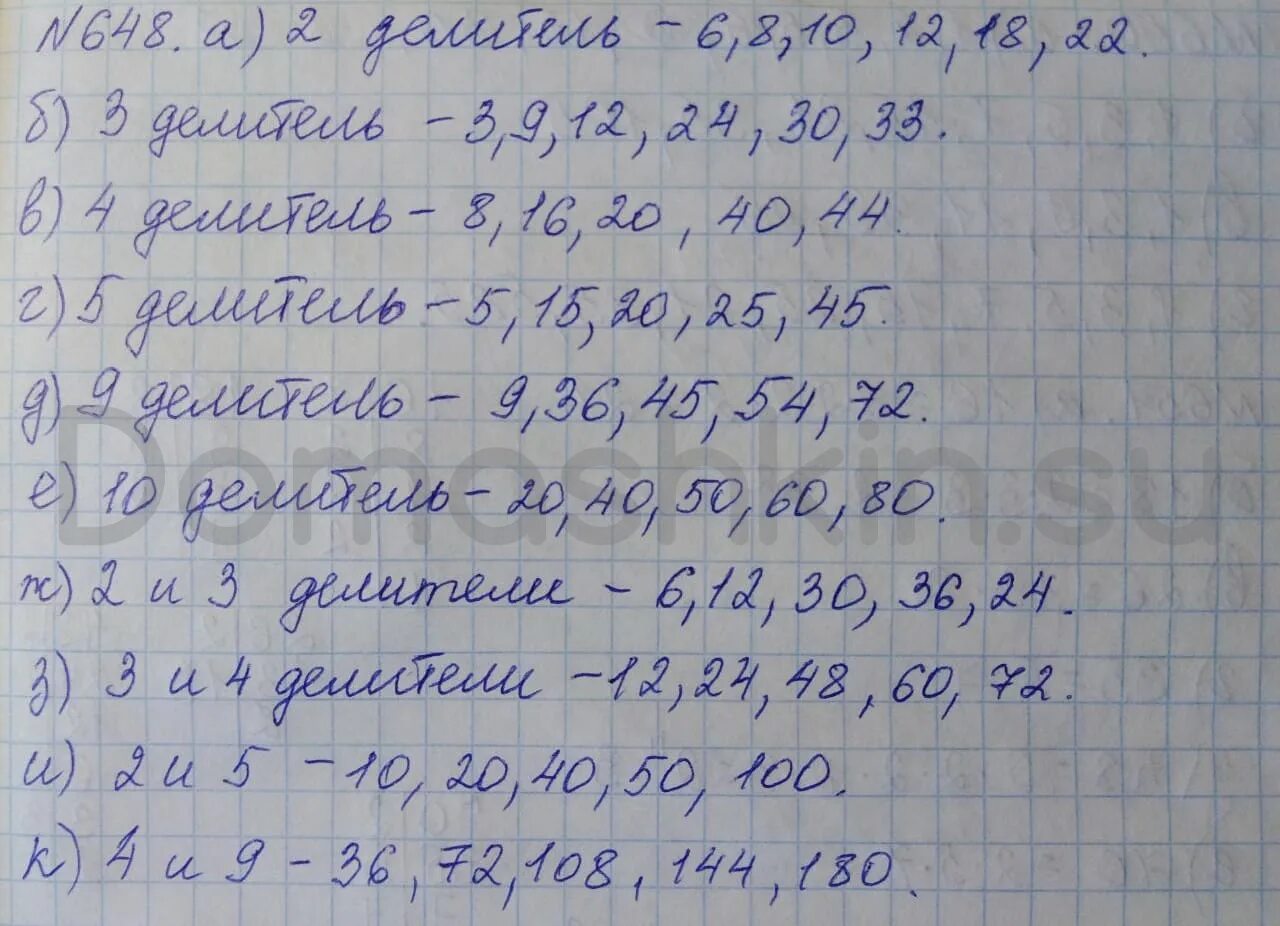 №648. а) 2 делитель - 6, 8, 10, 12, 18, 22.
б) 3 делитель - 3, 9, 12, 24, 30, 33.
в) 4 делитель - 8, 16, 20, 40, 44.
г) 5 делитель - 5, 15, 20, 25, 45.
д) 9 делитель - 9, 36, 45, 54, 72.
е) 10 делитель - 20, 40, 50, 60, 80.
ж) 2 и 3 делители - 6, 12, 30, 36, 24.
з) 3 и 4 делители - 12, 24, 48, 60, 72.
и) 2 и 5 - 10, 20, 40, 50, 100.
к) 4 и 9 - 36, 72, 108, 144, 180.
Domashkin.su